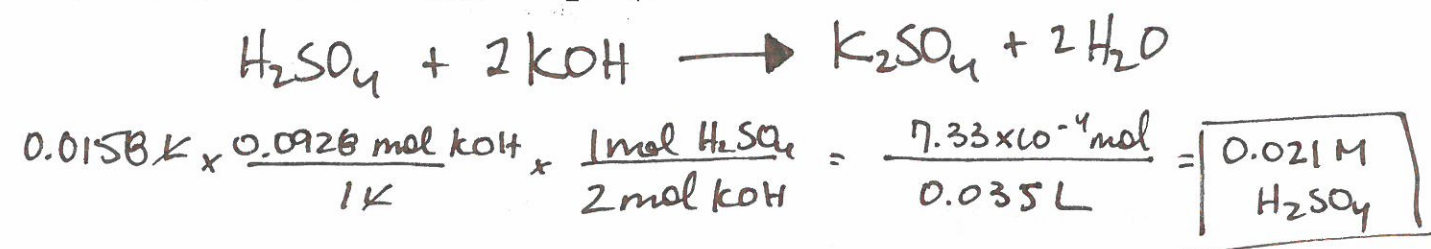 H₂SO₄ + 2KOH → K₂SO₄ + 2H₂O
0.0158 L × 0.0928 mol KOH / 1 L × 1 mol H₂SO₄ / 2 mol KOH = 7.33 × 10⁻⁴ mol / 0.035 L = 0.021 M H₂SO₄